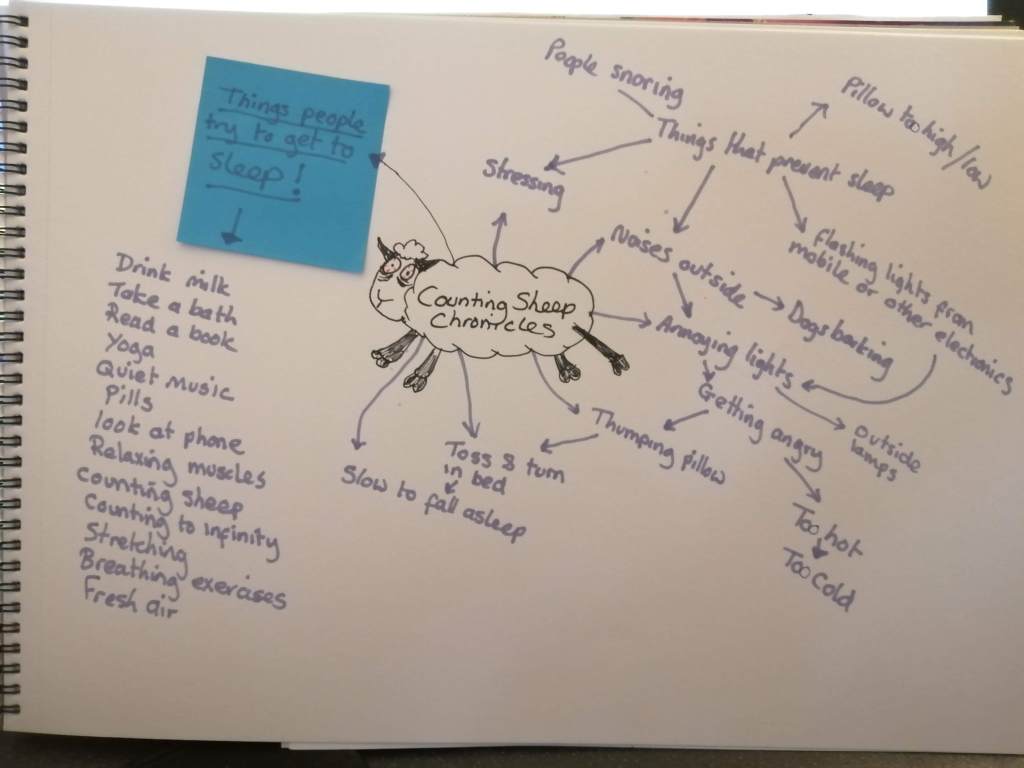 Things people
try to get to
sleep!
Drink milk
Take a bath
Read a book
Yoga
Quiet music
Pills
look at phone
Relaxing muscles
Counting sheep
Counting to infinity
Stretching
Breathing exercises
Fresh air
Counting Sheep
Chronicles
People snoring
Things that prevent sleep
Pillow too high/low
Stressing
Noises outside
Dogs barking
flashing lights from
mobile or other electronics
Annoying lights
Outside
lamps
Getting angry
Too hot
Too cold
Thumping pillow
Toss & turn
in bed
Slow to fall asleep